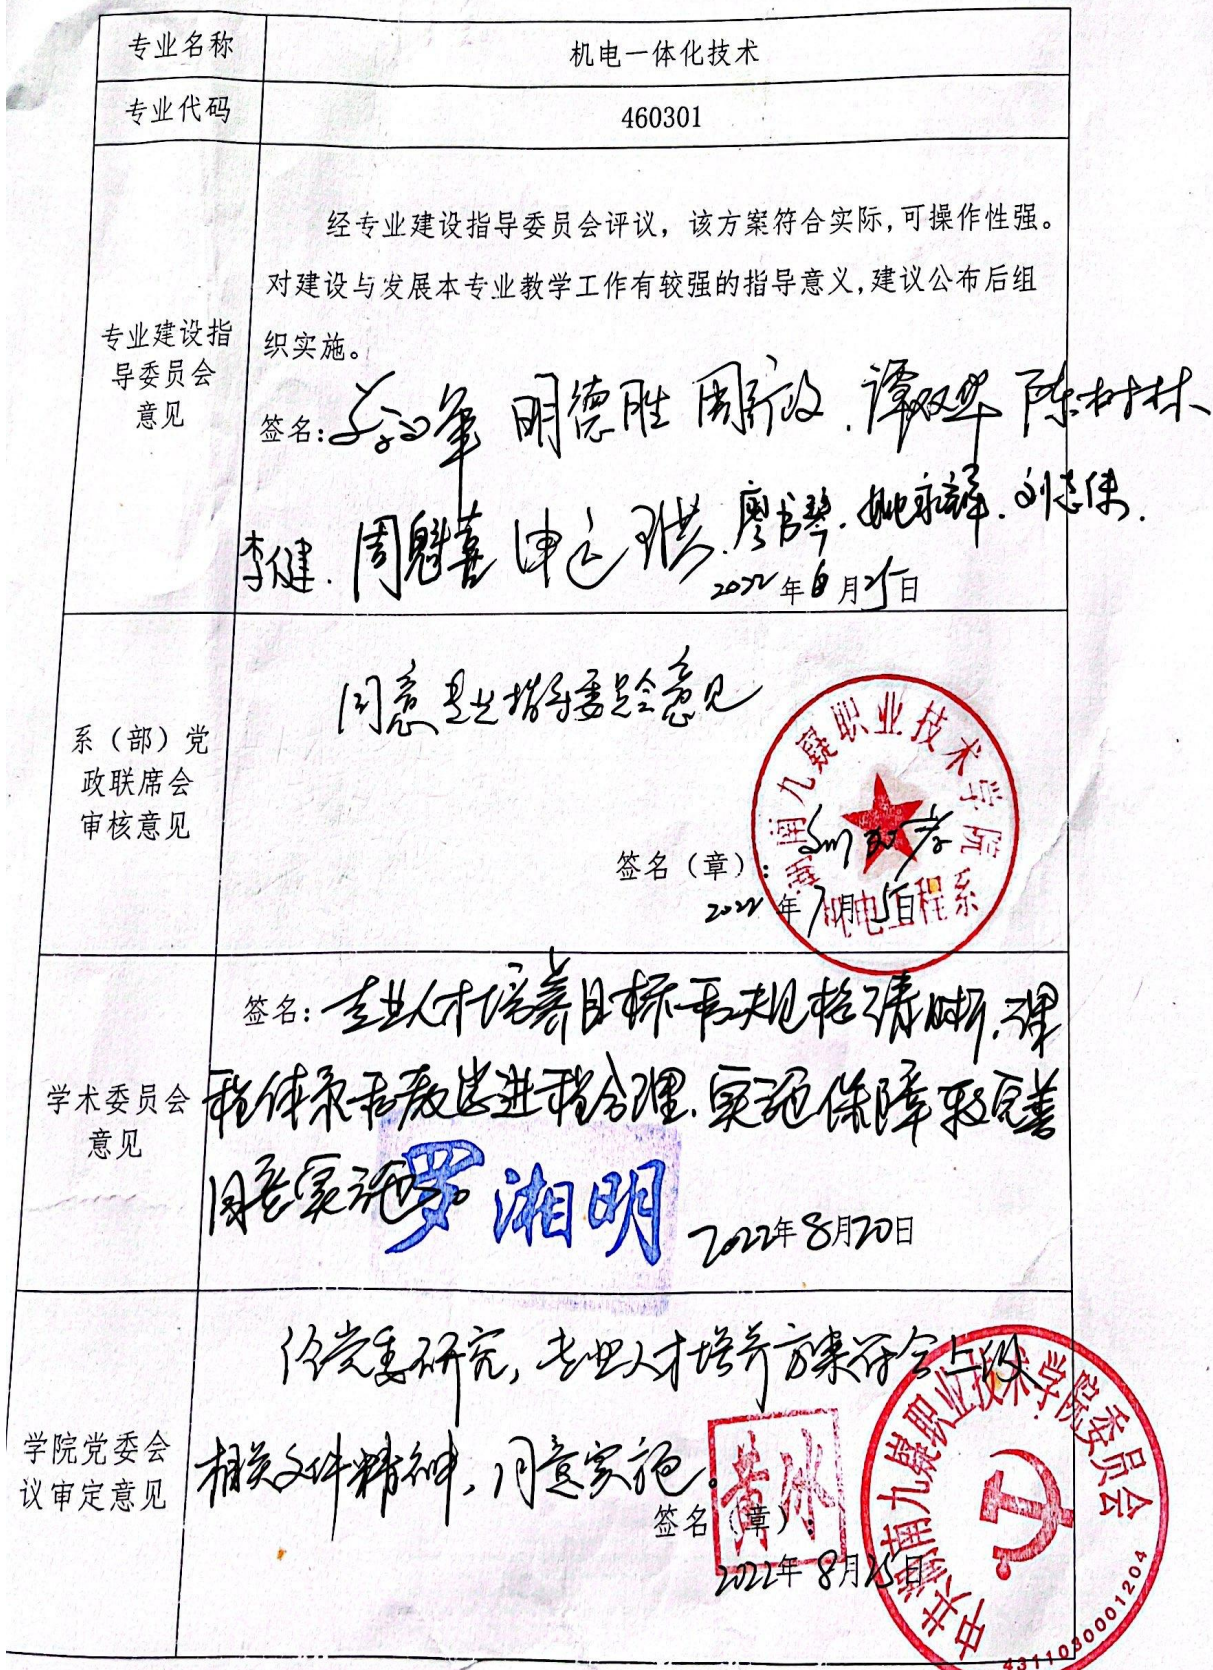 专业名称
机电一体化技术
专业代码
460301
专业建设指
导委员会
意见
经专业建设指导委员会评议，该方案符合实际,可操作性强。
对建设与发展本专业教学工作有较强的指导意义,建议公布后组
织实施。
签名: 明德胜 周新政. 谭双华 陈树林
李健. 周魁喜 申 洪. 廖书琴. 姚永辉. 刘志伟.
2022年6月25日
系（部）党
政联席会
审核意见
同意专业指导委员会意见
签名（章）:
2022年7月5日
湖南九嶷职业技术学院
机电工程系
学术委员会
意见
签名: 专业人才培养目标和规格清晰,课
程体系和教学进程合理.实施保障较完善
同意实施。
罗湘明
2022年8月20日
学院党委会
议审定意见
经党委研究, 专业人才培养方案符合上级
相关文件精神, 同意实施。
签名（章）:
黄冰
2022年8月25日
中共湖南九嶷职业技术学院委员会
4311030001204